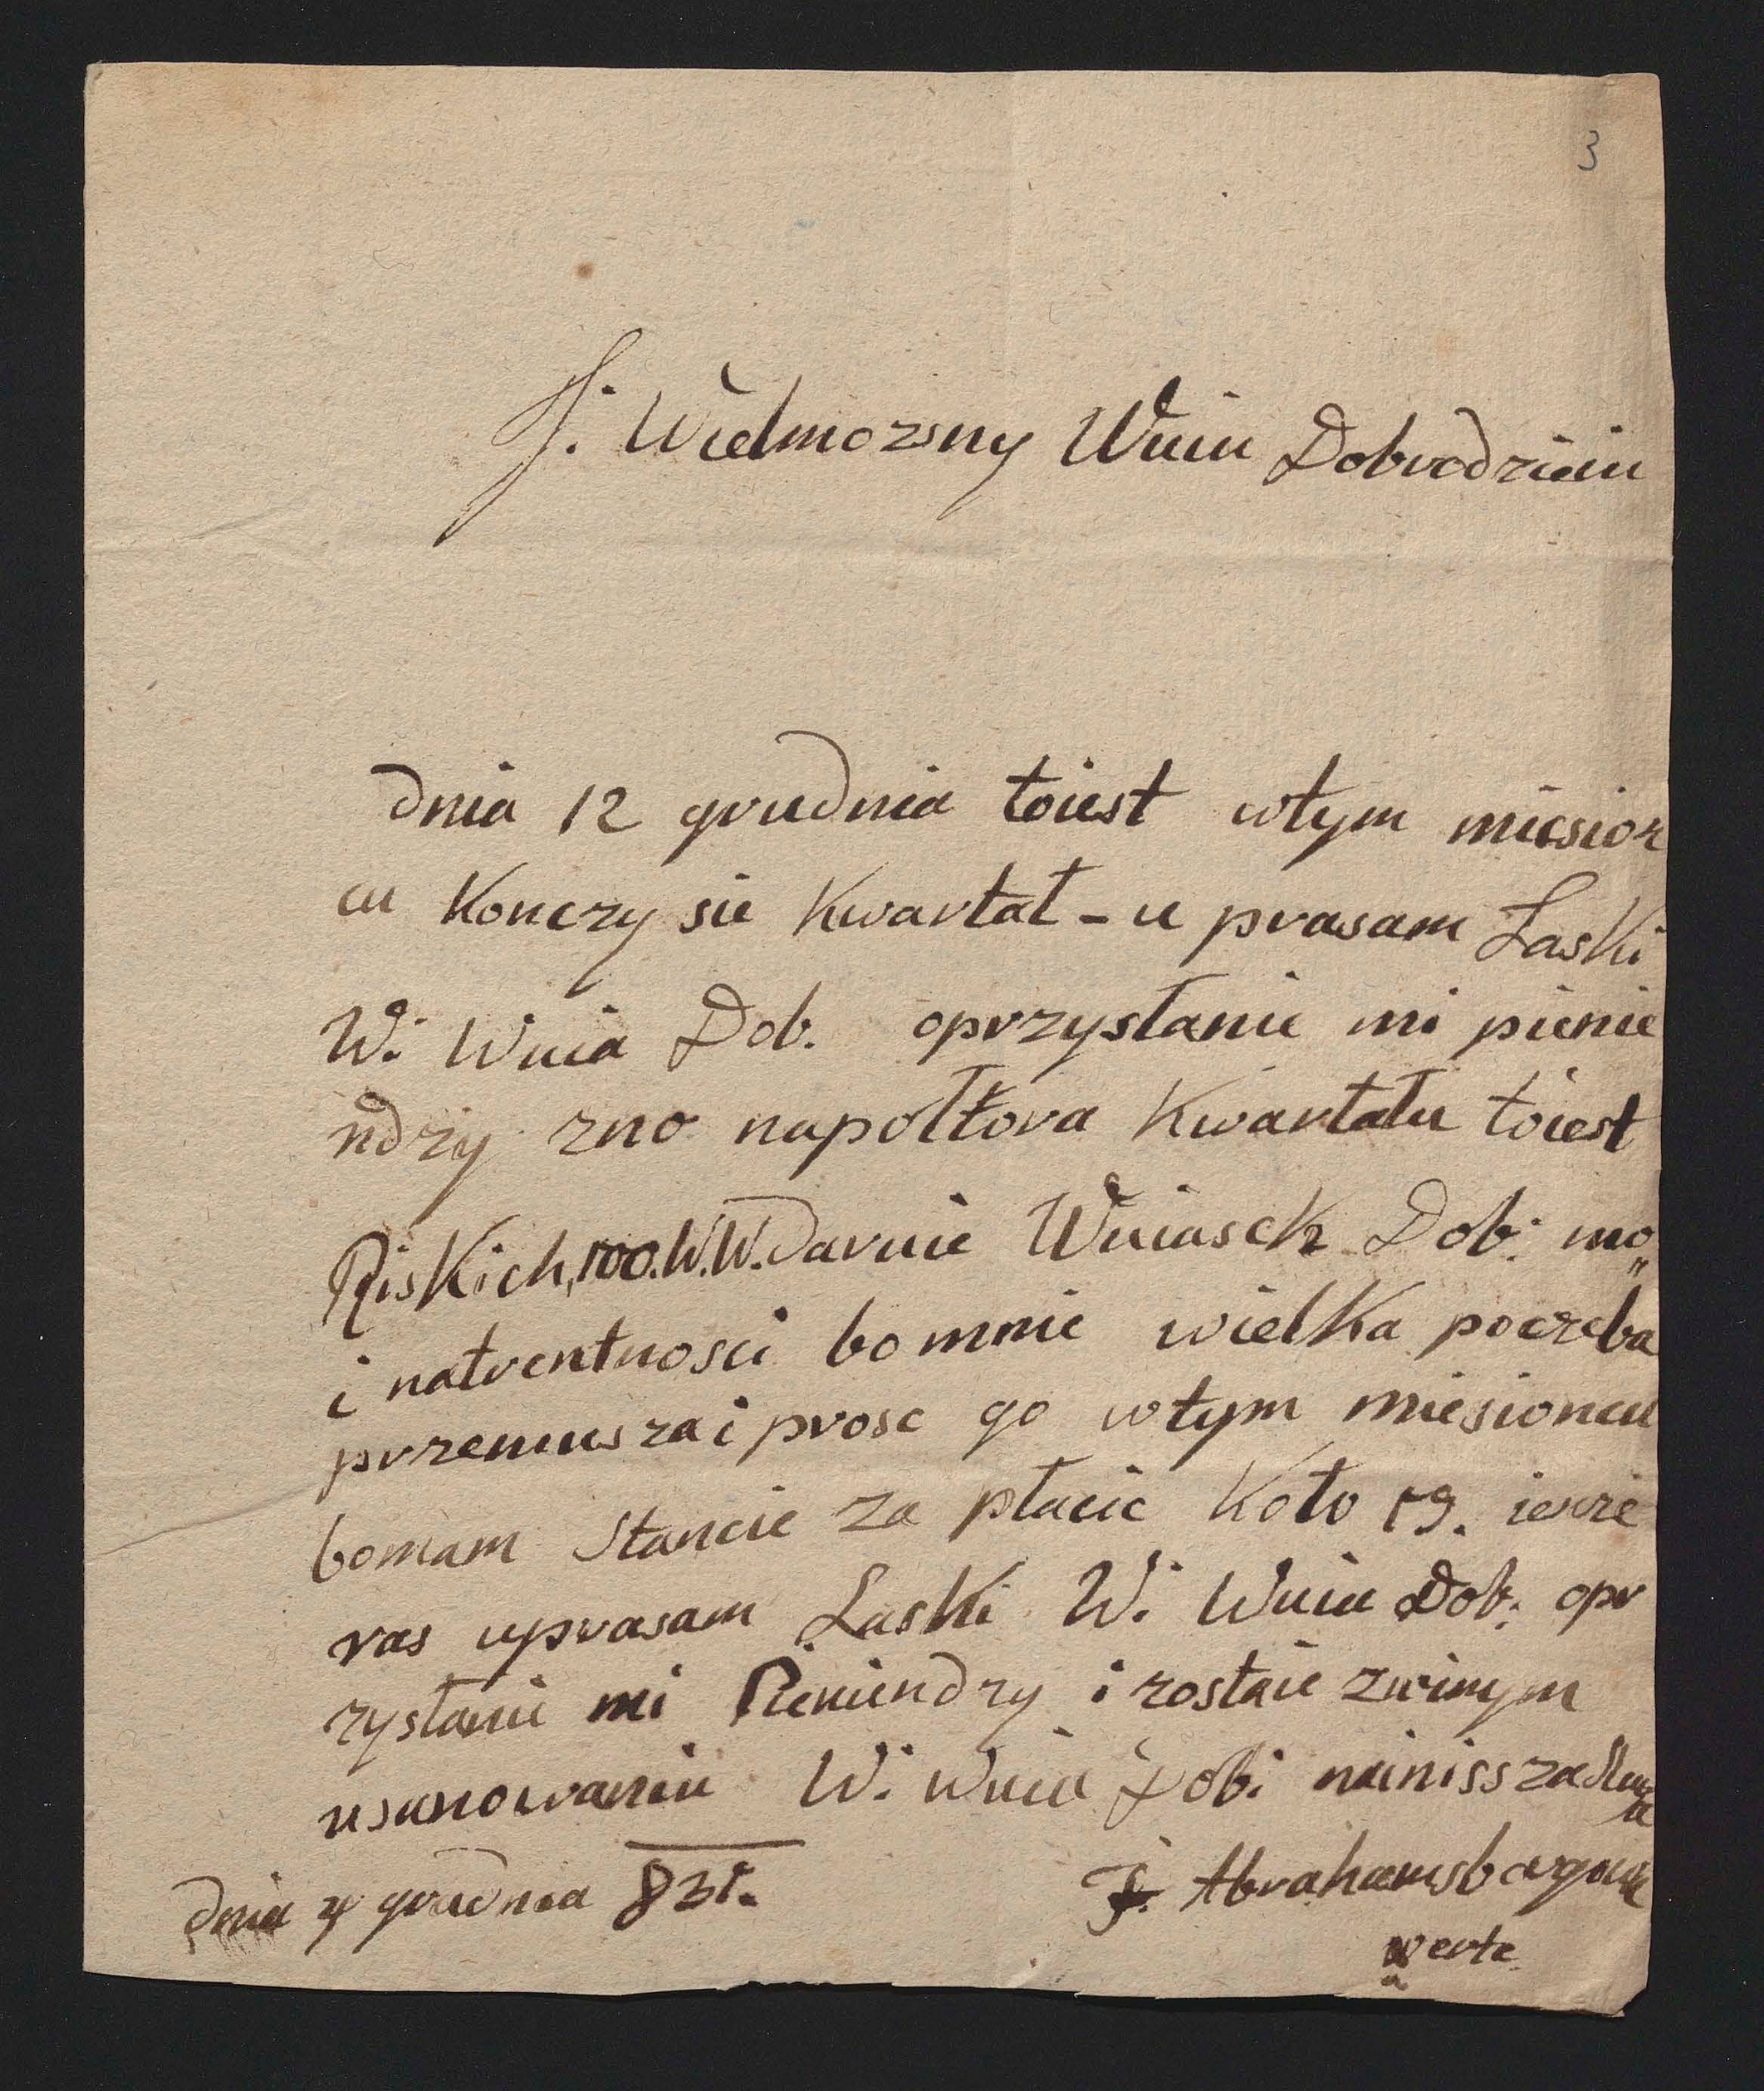 3
J. Wielmozsny Wuiu Dobrodzieiu
dnia 12 grudnia toiest wtym miesion
cu Konczy sie Kwartał - u prasam Łaski
W. Wuia Dob. oprzysłanie mi pienie
ndzy zno napołtora Kwartału toiest
Riskich, 100. W.W. Daruie Wuiasek Dob: mo„
i natrentnosci bo mnie wielka poczeba
przemusza i prosc go wtym miesioncu
bomam Stancie za płacic Koło 19. iescze
ras uprasam Łaski W. Wuia Dob: opr
zysłanie mi Pieniendzy i zostaie zwinym
usanowaniu W. Wuia Dob: nainissza Sluga
dnia 4 grudnia 831.
J. Abrahamsbergowa
werte